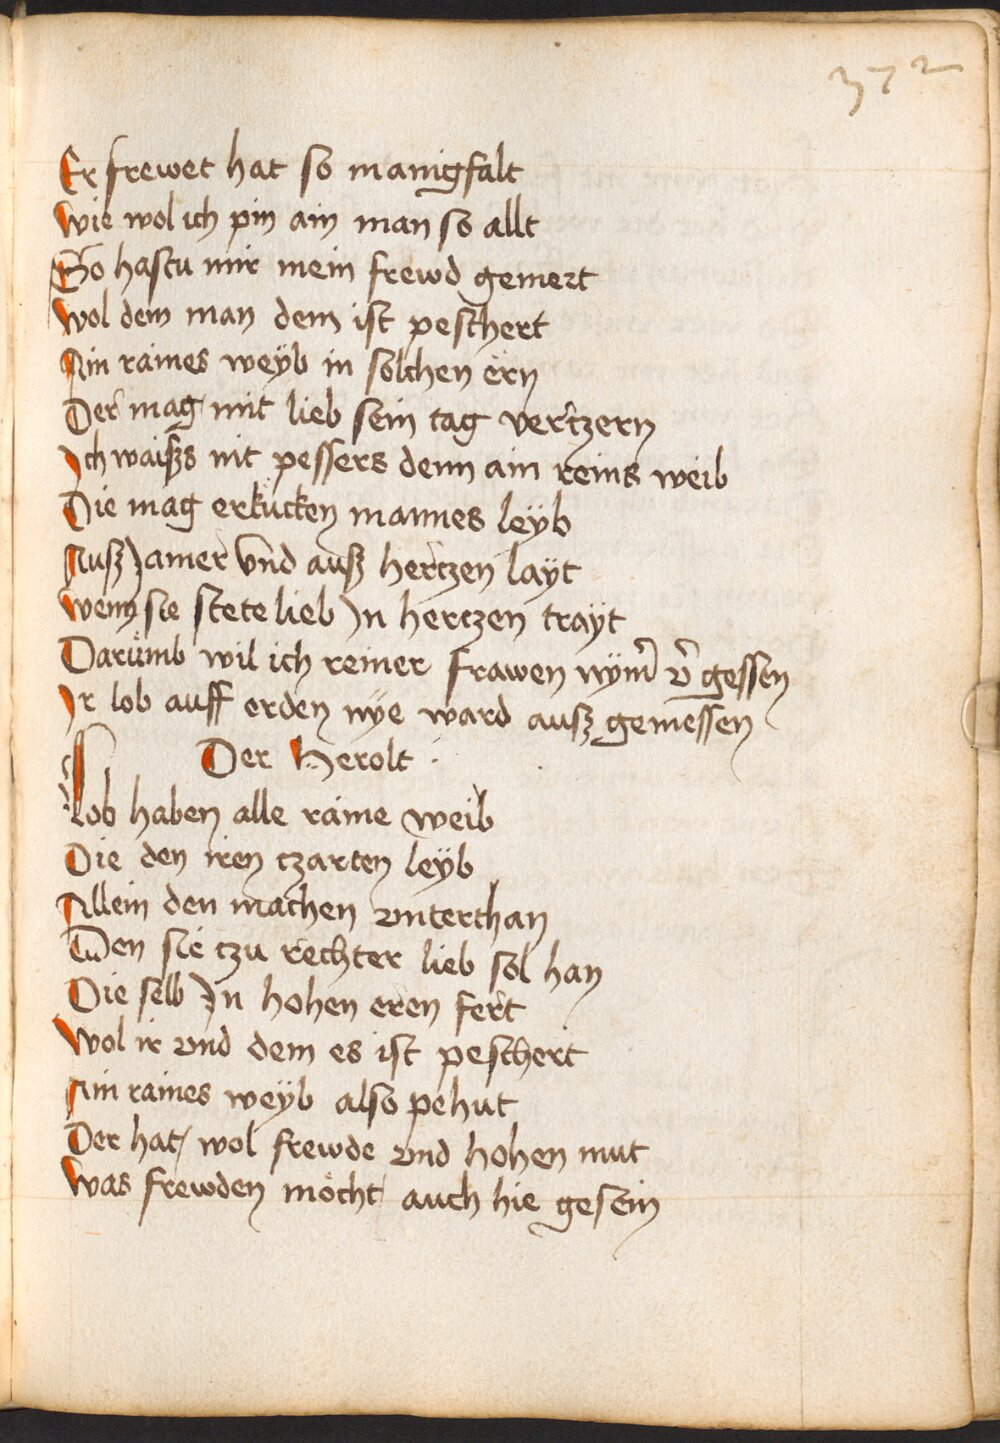 372
Er frewet hat so manigfalt
Wie wol ich pin ain man so allt
So hastu mir mein frewd gemert
Wol dem man dem ist peschert
Ain raines weÿb in solchen ern
Der mag mit lieb sein tag vertzern
Ich waiß̈s nit pessers denn ain reins weib
Die mag erkücken mannes leÿb
Auß Jamer vnd auß hertzen laÿt
Wenn sie stete lieb Jn hertzen traÿt
Darümb wil ich reiner frawen nÿm̄ v̄gessen
Ir lob auff erden nÿe ward auß gemessen
Der Herolt
Lob haben alle raine weib
Die den iren czarten leÿb
Allein den machen vnterthan
Den sie czu rechter lieb sol han
Die selb Jn hohen eren fert
Wol ir vnd dem es ist peschert
Ain raines weÿb also pehut
Der hat wol frewde vnd hohen mut
Was frewden möcht auch hie gesein